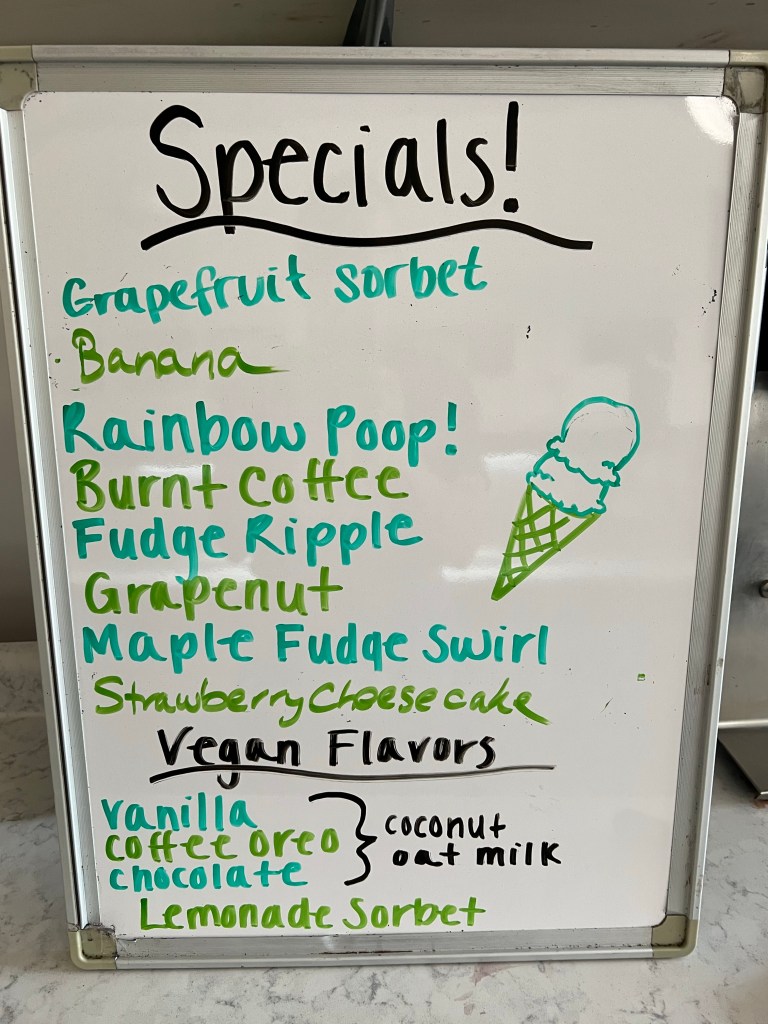 Specials!
Grapefruit sorbet
Banana
Rainbow Poop!
Burnt Coffee
Fudge Ripple
Grapenut
Maple Fudge Swirl
Strawberry Cheesecake
Vegan Flavors
vanilla
coffee oreo
chocolate
coconut
oat milk
Lemonade Sorbet